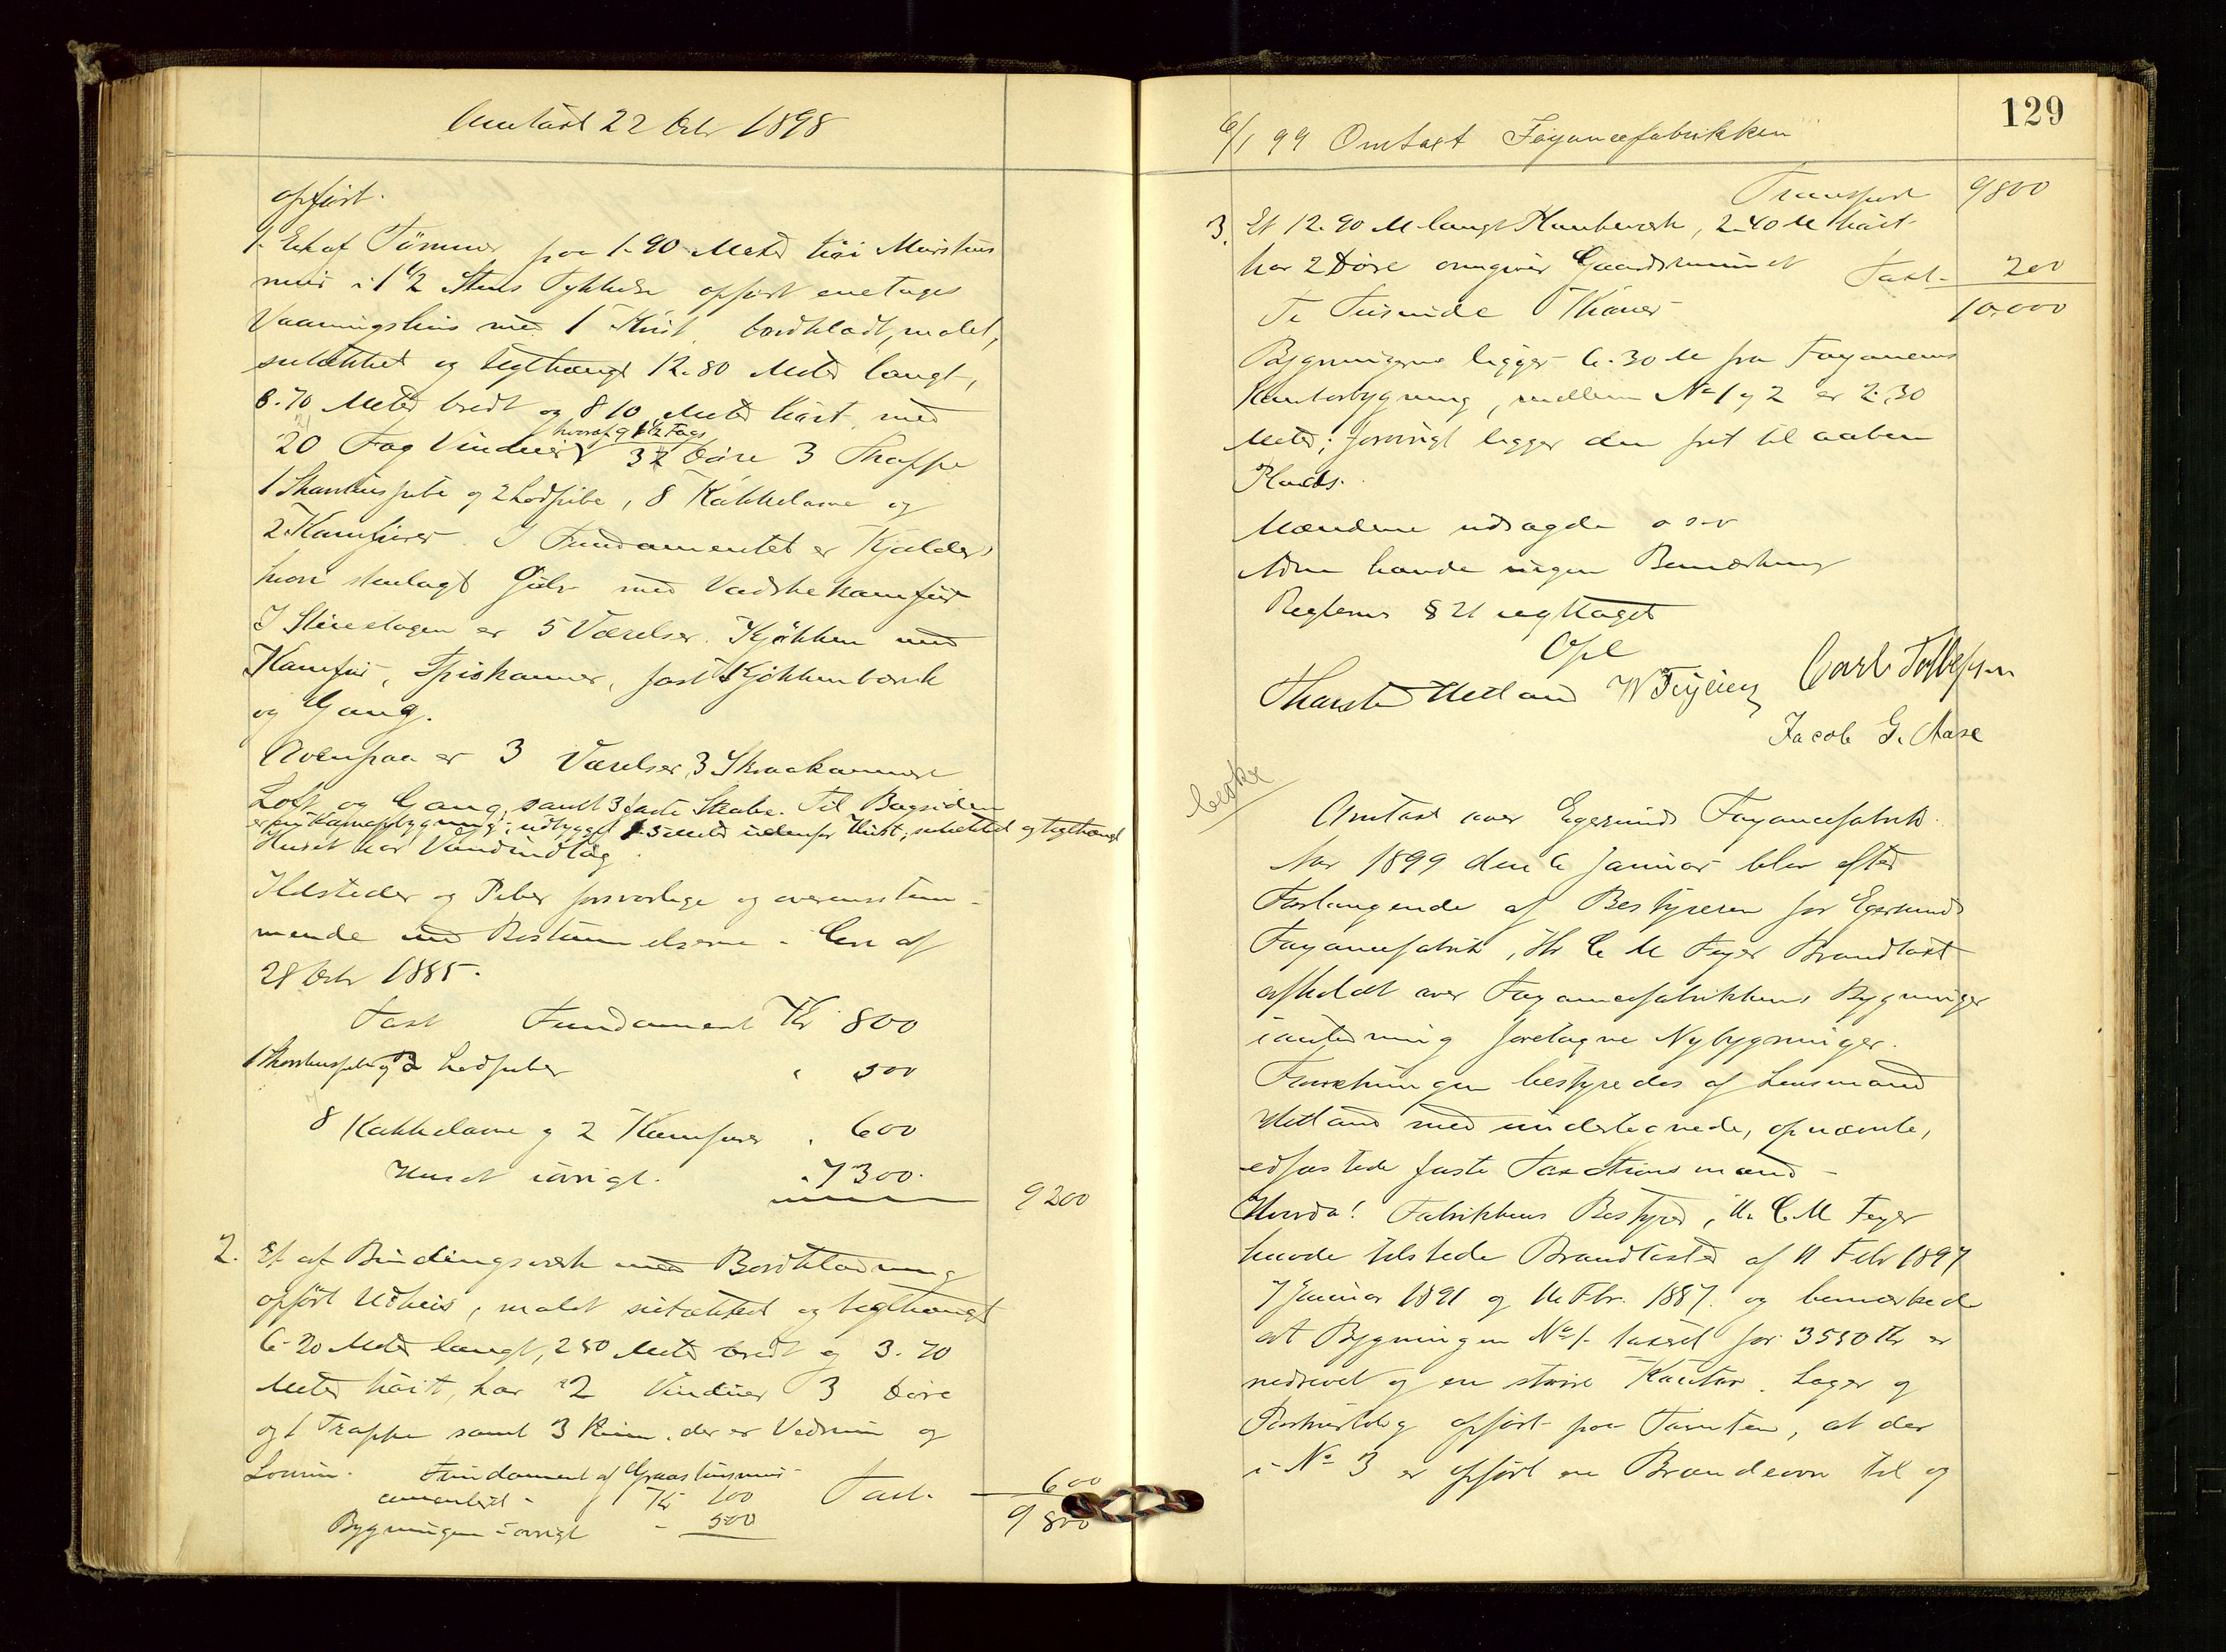 Omtaxt 22 Octr 1898
opført.
1. Et af Tømmer paa 1.90 Meter høi Murstens
mur i 1 1/2 Stens Tykkelse opført enetages
Vaaningshus med 1 Kvist, bordklædt, malet,
sutækket og teglhængt 12.80 Meter langt,
8.70 Meter bredt og 8 10 Meter høit, med
hvoraf 9 1 1/2 Fags
20 Fag Vinduer 32 Døre 3 Trappe
1 Skorstenspibe og 2 Lodpibe, 8 Kakkelovne og
2 Komfurer. I Fundamentet er Kjelder,
hvori stenlagt Gulv med Vadskekomfur
I Stueetagen er 5 Værelser. Kjøkken med
Komfur, Spiskammer, fast Kjøkkenbænk
og Gang.
Ovenpaa er 3 Værelser, 3 Skraakammere
Loft og Gang, samt 3 faste Skabe. Til Bagsiden
er en udbygget 1.5 Meter udenfor Huset, sutækket og teglhængt
Huset har Vandindlæg
Ildsteder og Piber forsvarlige og overensstem-
mende med Bestemmelserne i Circ af
28 Octr 1885.
Taxt Fundament Kr 800
1 Skorstenspibe og 2 Lodpiber " 500
8 Kakkelovne og 2 Komfurer " 600
Huset iøvrigt. " 7300.
9200
2. Et af Bindingsværk med Bordklædning
opført Udhus, malet sutækket og teglhængt
6.20 Meter langt, 2 80 Meter bredt og 3.70
Meter høit, har 2 Vinduer 3 Døre
og 1 Trappe samt 3 Rum, der er Vedrum og
Fundament af Graastensmur
cementert - Kr 100 Taxt. 600
Bygningen iøvrigt - 500
9 800
129
6/1 99 Omtaxt Fayancefabrikken
Transport 9800
3. Et 12.90 M langt Plankeværk, 2.40 M høit
har 2 Døre omgiver Gaardsrummet Taxt- 200
Ti Tusinde Kroner 10,000
Bygningerne ligger 6.30 M fra Fayancens
Kontorbygning, mellem No 1 og 2 er 2.30
Meter; forøvrigt ligger den frit til aaben
Plads.
Mændene udsagde o s v
Adm havde ingen Bemærkning
Reglems § 21 iagttaget
Opl
Thorsten Hetland W Feyling Carl Torbjørnsen
Jacob G. Aase
Omtaxt over Egersunds Fayancefabrik.
Aar 1899 den 6 Januar blev efter
Forlangende af Bestyreren for Egersunds
Fayancefabrik, Hr C M Feyer Brandtaxt
afholdt over Fayancefabrikkens Bygninger
i anledning foretagne Nybygninger.
Forretningen bestyredes af Lensmand
Hetland med undertegnede, opnævnte,
edfæstede faste Taxationsmænd -
Hvorda! Fabrikkens Bestyrer, Hr C. M Feyer
havde tilstede Brandtaxter af 11 Febr 1897
7 Januar 1891 og 16 Fbr. 1887. og bemærkede
at Bygningen No 1. taxeret for 3550 Kr er
nedrevet og en større Kontor. Lager og
opført paa Tomten, at der
i No 3 er opført en Brændeovn til og